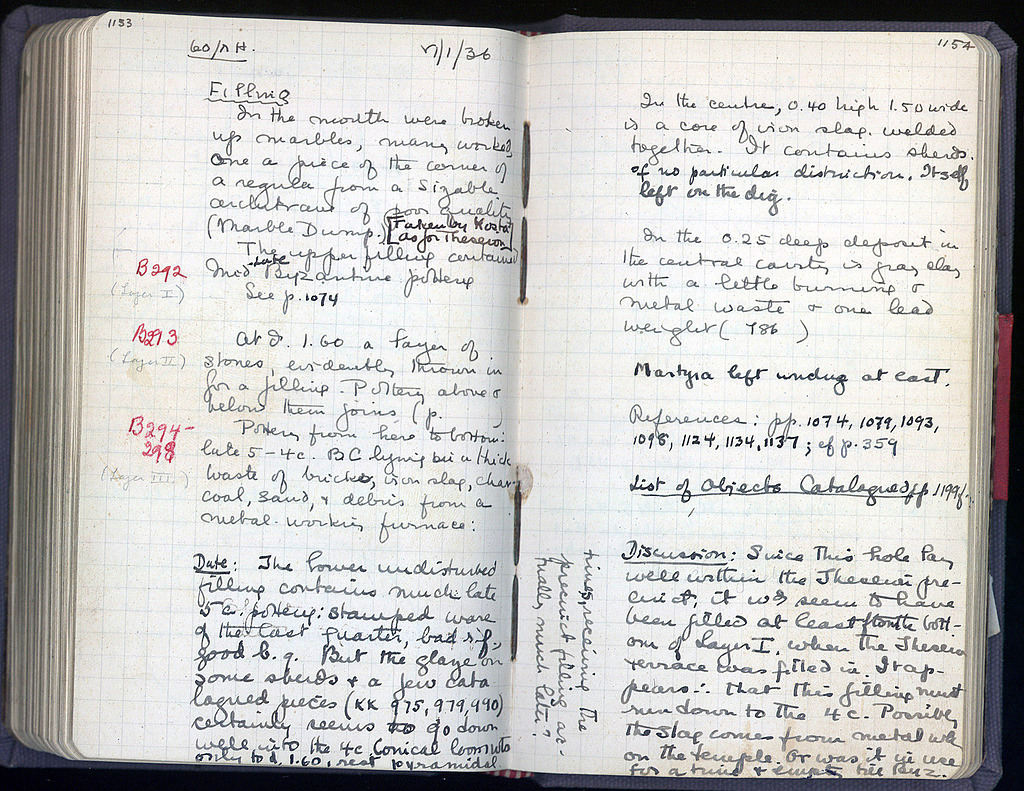 1153
60/ΛH.
7/1/36
Filling
In the mouth were broken
up marbles, many worked,
one a piece of the corner of
a regula from a sizable
architrave of poor quality
(Marble Dump.) [Taken by Kosta
as for Theseion]
The upper filling contained
B292
late
Mid Byzantine pottery
(Layer I)
See p. 1074
B293
At d. 1.60 a layer of
(Layer II)
stones, evidently thrown in
for a filling. Pottery above &
below them joins (p. )
B294-
298
Pottery from here to bottom:
late 5-4c. BC lying in a thick
(Layer III)
waste of bricks, iron slag, char-
coal, sand, & debris from a
metal-working furnace:
Date: The lower undisturbed
filling contains much late
5c. pottery: stamped ware
of the last quarter, bad r.f.,
good b.g. But the glaze on
some sherds & a few cata
logued pieces (KK 975, 979, 990)
certainly seems to go down
well into the 4c. Conical loomwts
only to d. 1.60, rest pyramidal
1154
In the centre, 0.40 high 1.50 wide
is a core of iron slag welded
together. It contains sherds
of no particular distinction. Itself
left on the dig.
In the 0.25 deep deposit in
the central cavity is gray clay
with a little burning &
metal waste & one lead
weight ( 786 )
Martyra left undug at east.
References: pp. 1074, 1079, 1093,
1098, 1124, 1134, 1137; cf p. 359
List of Objects Catalogued, pp 1199f.
Discussion: Since this hole lay
well within the Theseion pre-
cinct, it wd seem to have
been filled at least from the bott-
om of Layer I, when the Theseion
terrace was filled in. It ap-
pears ∴ that this filling must
run down to the 4c. Possibly
the slag comes from metal wk
on the temple. Or was it in use
for a time & empty till Byz.
times, receiving the
precinct filling ac-
tually much later?